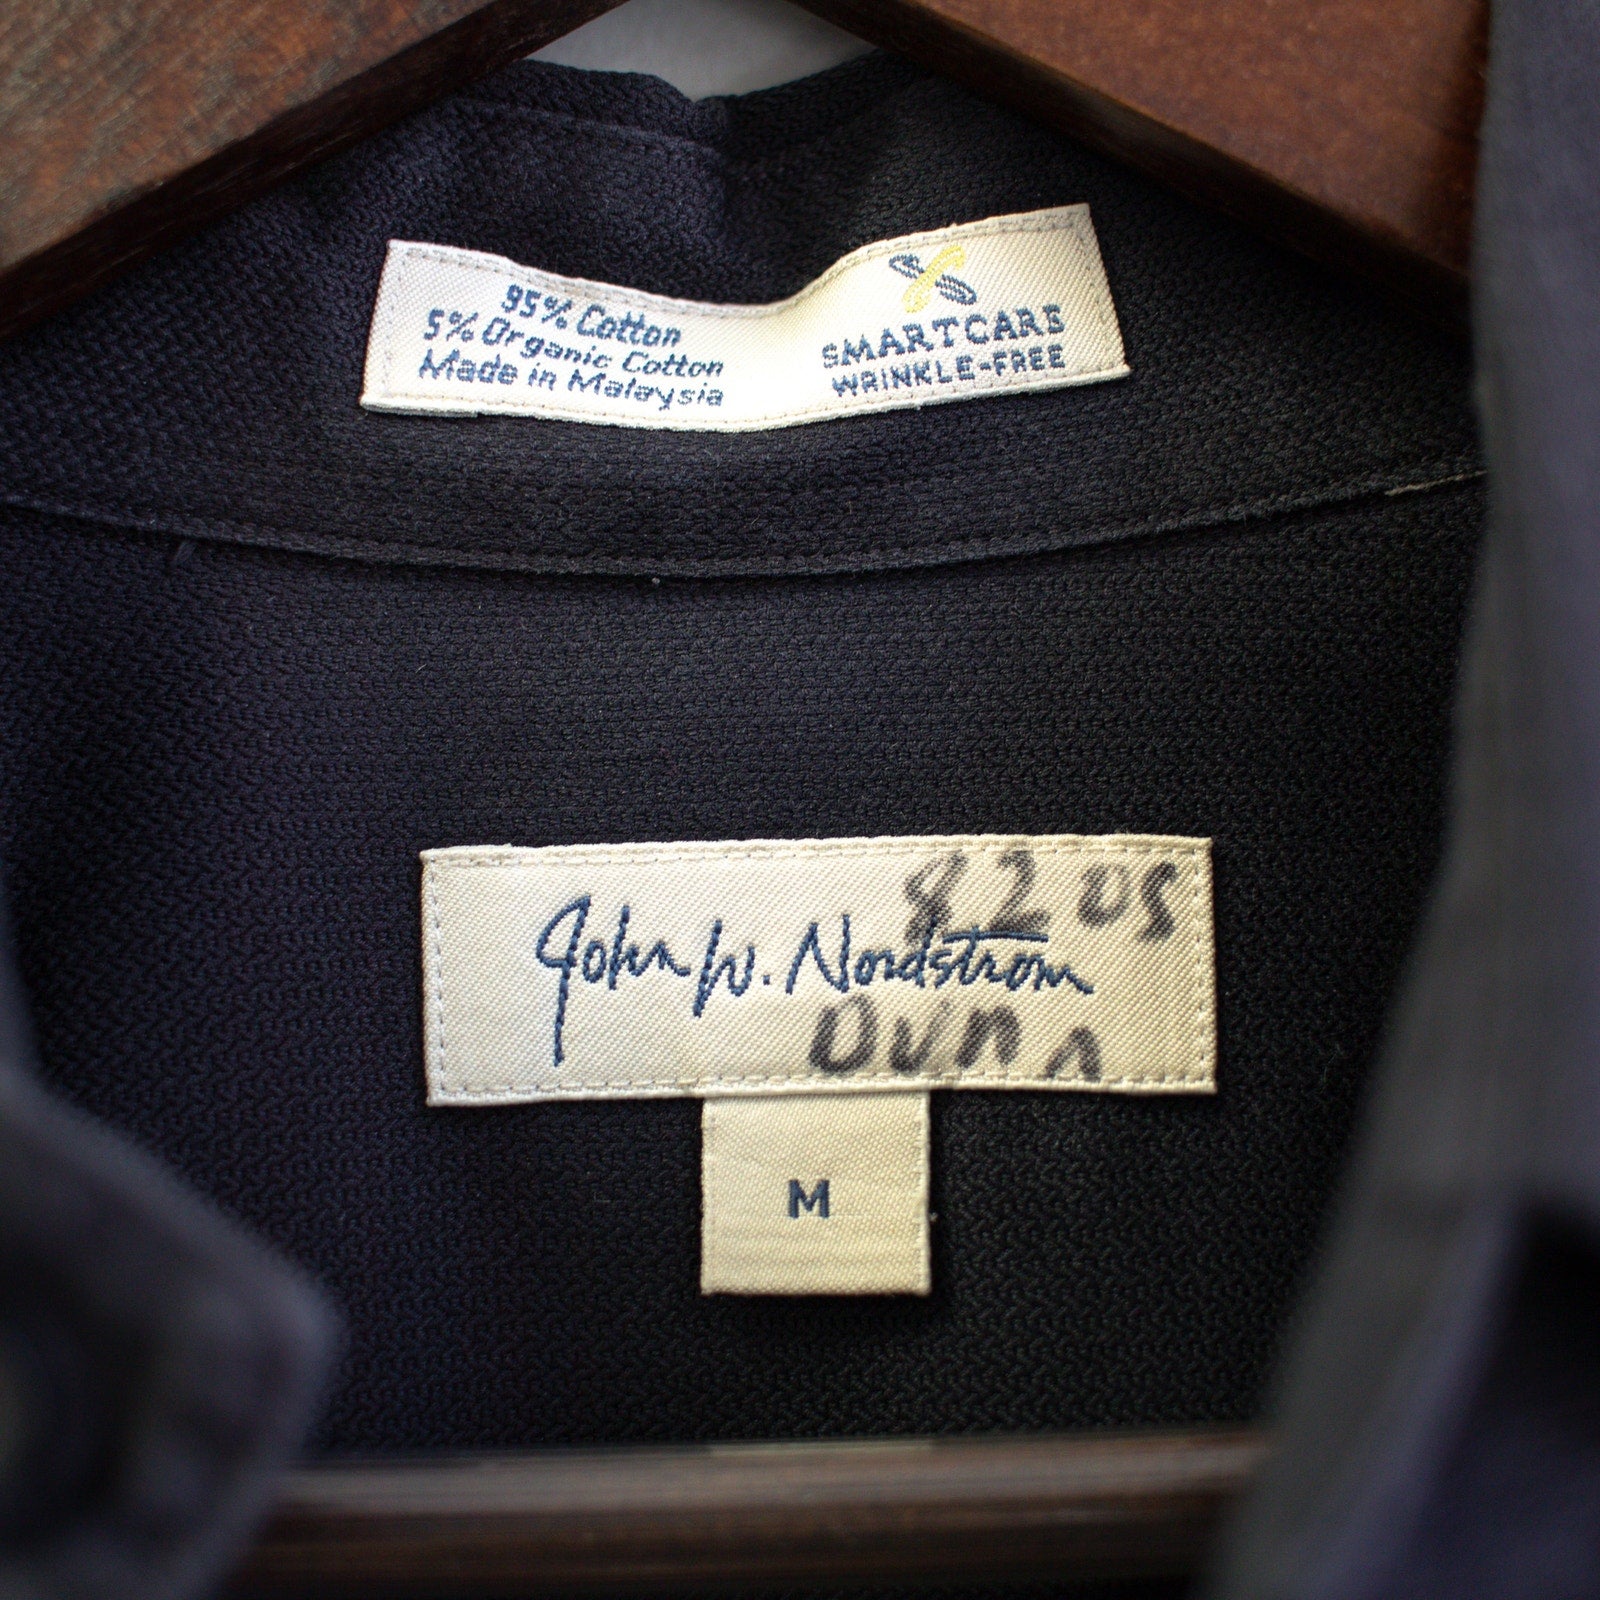 95% Cotton
5% Organic Cotton
Made in Malaysia
SMARTCARE
WRINKLE-FREE
8205
John W. Nordstrom
M